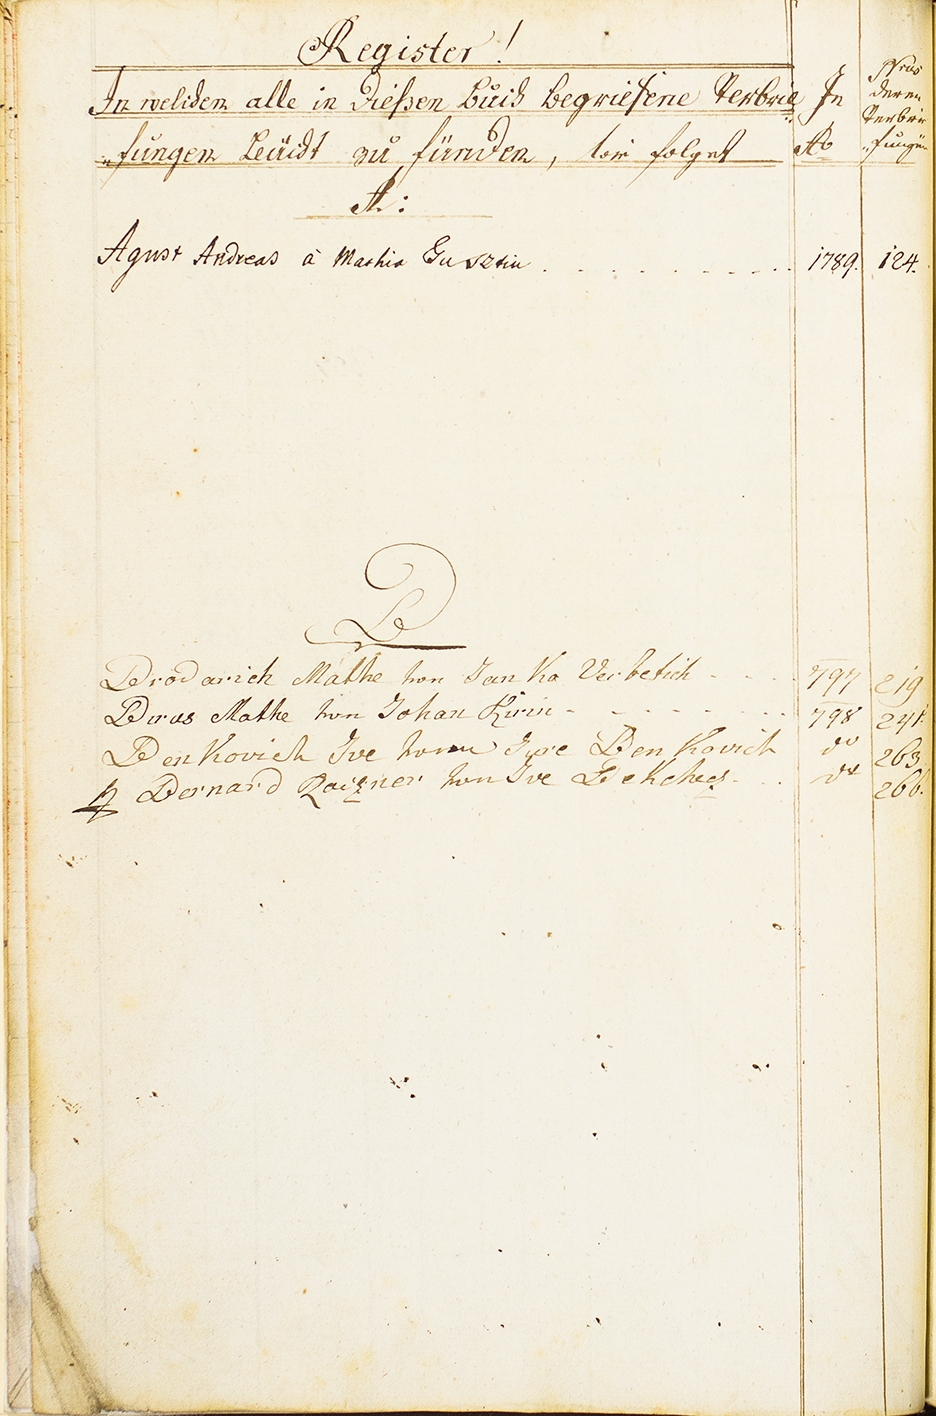 Register!
In welichem alle in Dießen Buich begriefene Verbrie In Pfrus
„fungen Leücht zu fünden, wie folget Ao deren Verbrie
„fungen
A:
Agust Andreas à Mathia Gusztin 1789. 124.
B
Brodarich Mathe von Janka Verbetich 797 219
Buras Mathe von Johan Kirin 798 241.
Benkovich Ive von Iure Benkovich do 263
Bernard Raizner von Ive Bekches do 266.